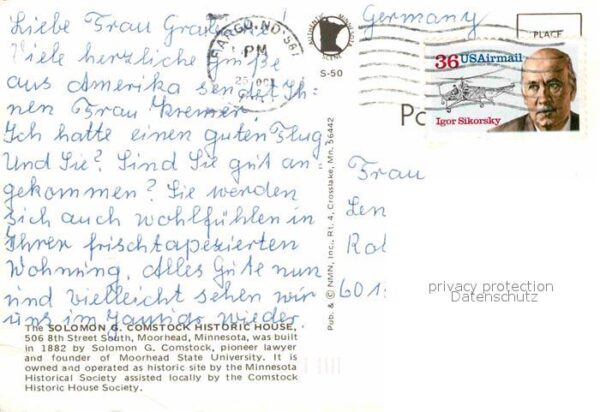 Liebe Frau
Viele herzliche Grüße
aus Amerika sendet Ih-
nen Frau Kremer.
Ich hatte einen guten Flug.
Und Sie? Sind Sie gut an
gekommen? Sie werden
sich auch wohlfühlen in
Ihren frischtapezierten
Wohnung. Alles Gute nun
und vielleicht sehen wir
uns im wieder
The SOLOMON G. COMSTOCK HISTORIC HOUSE,
506 8th Street South, Moorhead, Minnesota, was built
in 1882 by Solomon G. Comstock, pioneer lawyer
and founder of Moorhead State University. It is
owned and operated as historic site by the Minnesota
Historical Society assisted locally by the Comstock
Historic House Society.
FARGO, ND 581
PM
S-50
Pub. & © NMN, Inc., Rt. 4, Crosslake, Mn. 56442
Germany
PLACE
36 USAirmail
Igor Sikorsky
Po
Frau
Len
Rat
601
privacy protection
Datenschutz